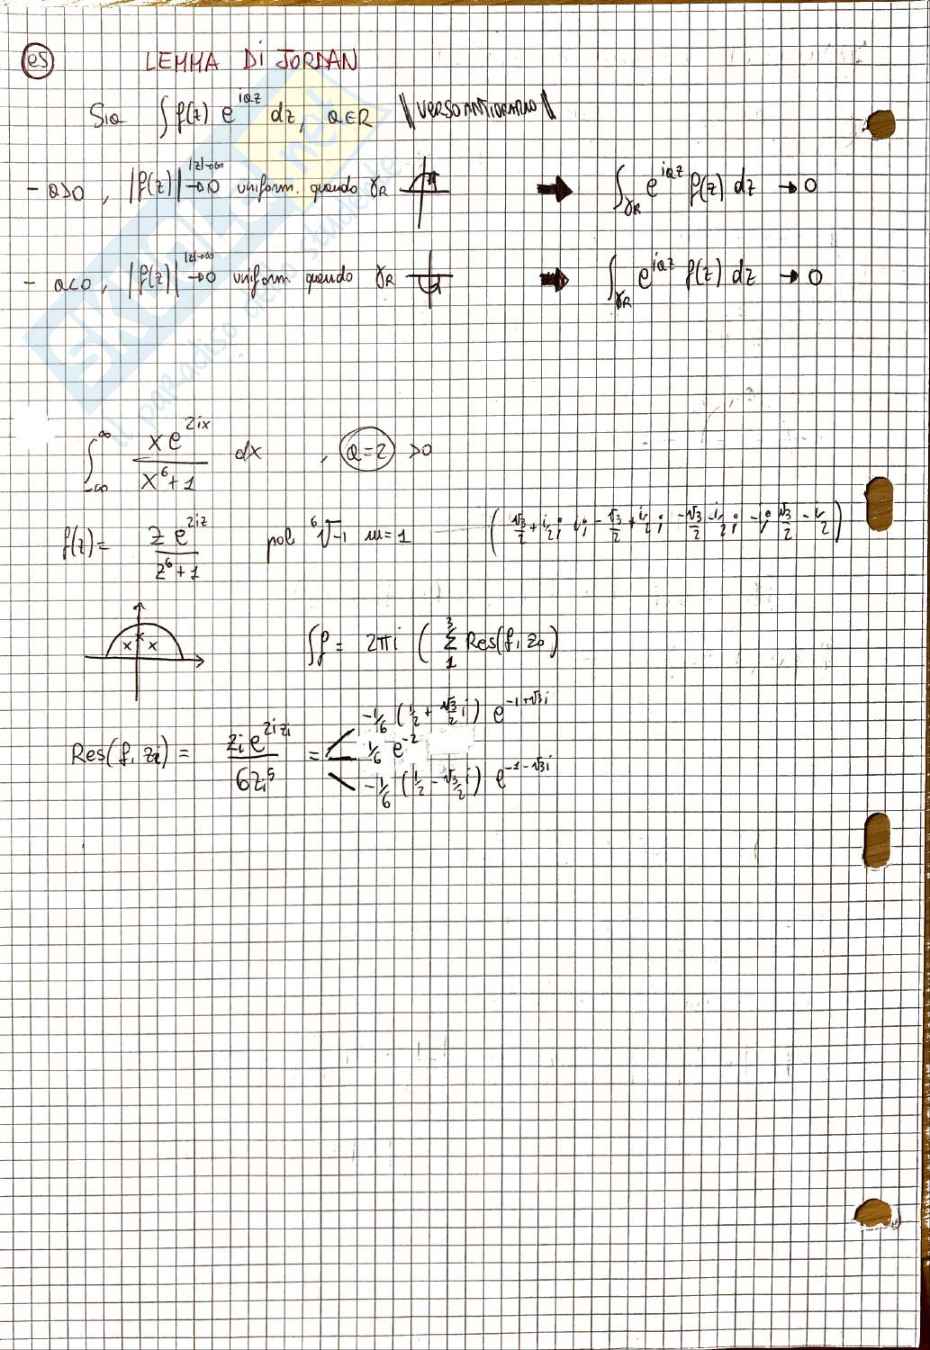 es LEMMA DI JORDAN
Sia ∫ f(z) e^{iaz} dz, a∈R ‖VERSO ANTIORARIO‖
- a>0, |f(z)| →^{|z|→∞} 0 uniform. quando γ_R ➡ ∫_{γ_R} e^{iaz} f(z) dz → 0
- a<0, |f(z)| →^{|z|→∞} 0 uniform quando γ_R ➡ ∫_{γ_R} e^{iaz} f(z) dz → 0
∫_{-∞}^{∞} \frac{x e^{2ix}}{x^6+1} dx , a=2 >0
f(z)= \frac{z e^{2iz}}{z^6+1} pol \sqrt[6]{-1} m=1 (√3/2+i/2; i; -√3/2+i/2; -√3/2-i/2; -i; √3/2-i/2)
∫f = 2πi ( Σ_1^3 Res(f, z_0)
Res(f, z_i) = \frac{z_i e^{2iz_i}}{6z_i^5} =
-1/6 (1/2 + √3/2 i) e^{-1+√3i}
1/6 e^{-2}
-1/6 (1/2 - √3/2 i) e^{-1-√3i}
SKUOLA.net
il paradiso dello studente